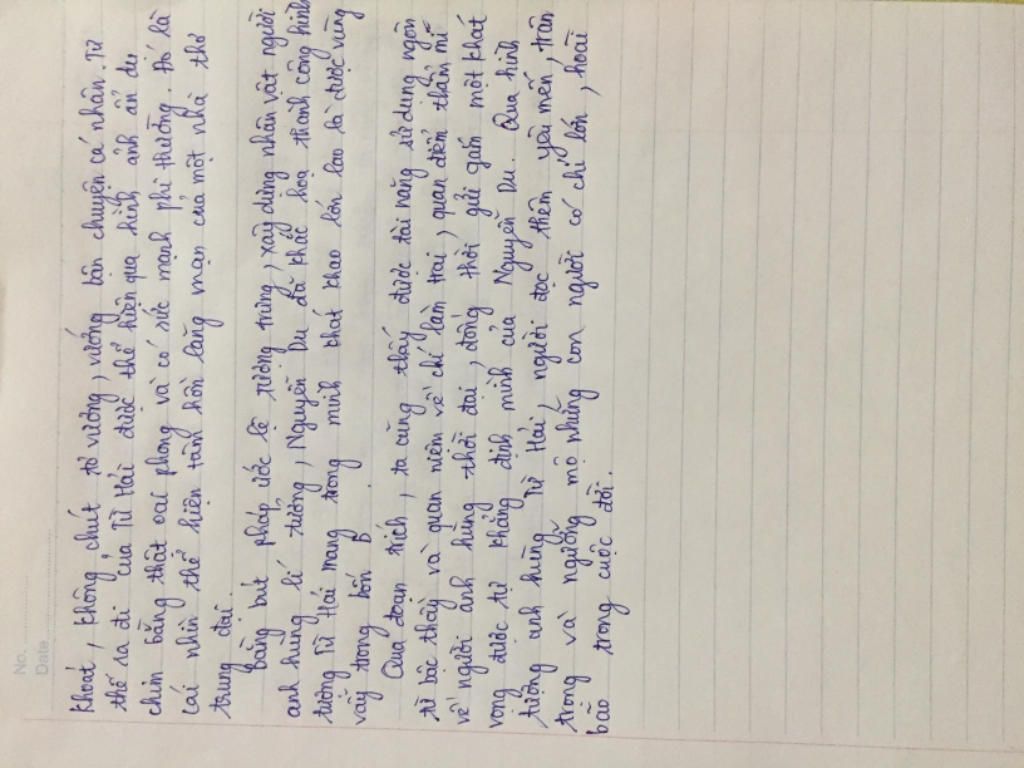 No.
Date
khoát, không chút tơ vương, vướng bận chuyện cá nhân. Tư
thế ra đi của Từ Hải được thể hiện qua hình ảnh ẩn dụ
chim bằng thật oai phong và có sức mạnh phi thường. Đó là
cái nhìn thể hiện tâm hồn lãng mạn của một nhà thơ
trung đại.
Bằng bút pháp ước lệ tượng trưng, xây dựng nhân vật người
anh hùng lí tưởng, Nguyễn Du đã khắc hoạ thành công hình
tượng Từ Hải mang trong mình khát khao lớn lao là được vùng
vẫy trong bốn b.
Qua đoạn trích, ta cũng thấy được tài năng sử dụng ngôn
từ bậc thầy và quan niệm về chí làm trai, quan điểm thẩm mĩ
về người anh hùng thời đại, đồng thời gửi gắm một khát
vọng được tự khẳng định mình của Nguyễn Du. Qua hình
tượng anh hùng Từ Hải, người đọc thêm yêu mến, trân
trọng và ngưỡng mộ những con người có chí lớn, hoài
bão trong cuộc đời.